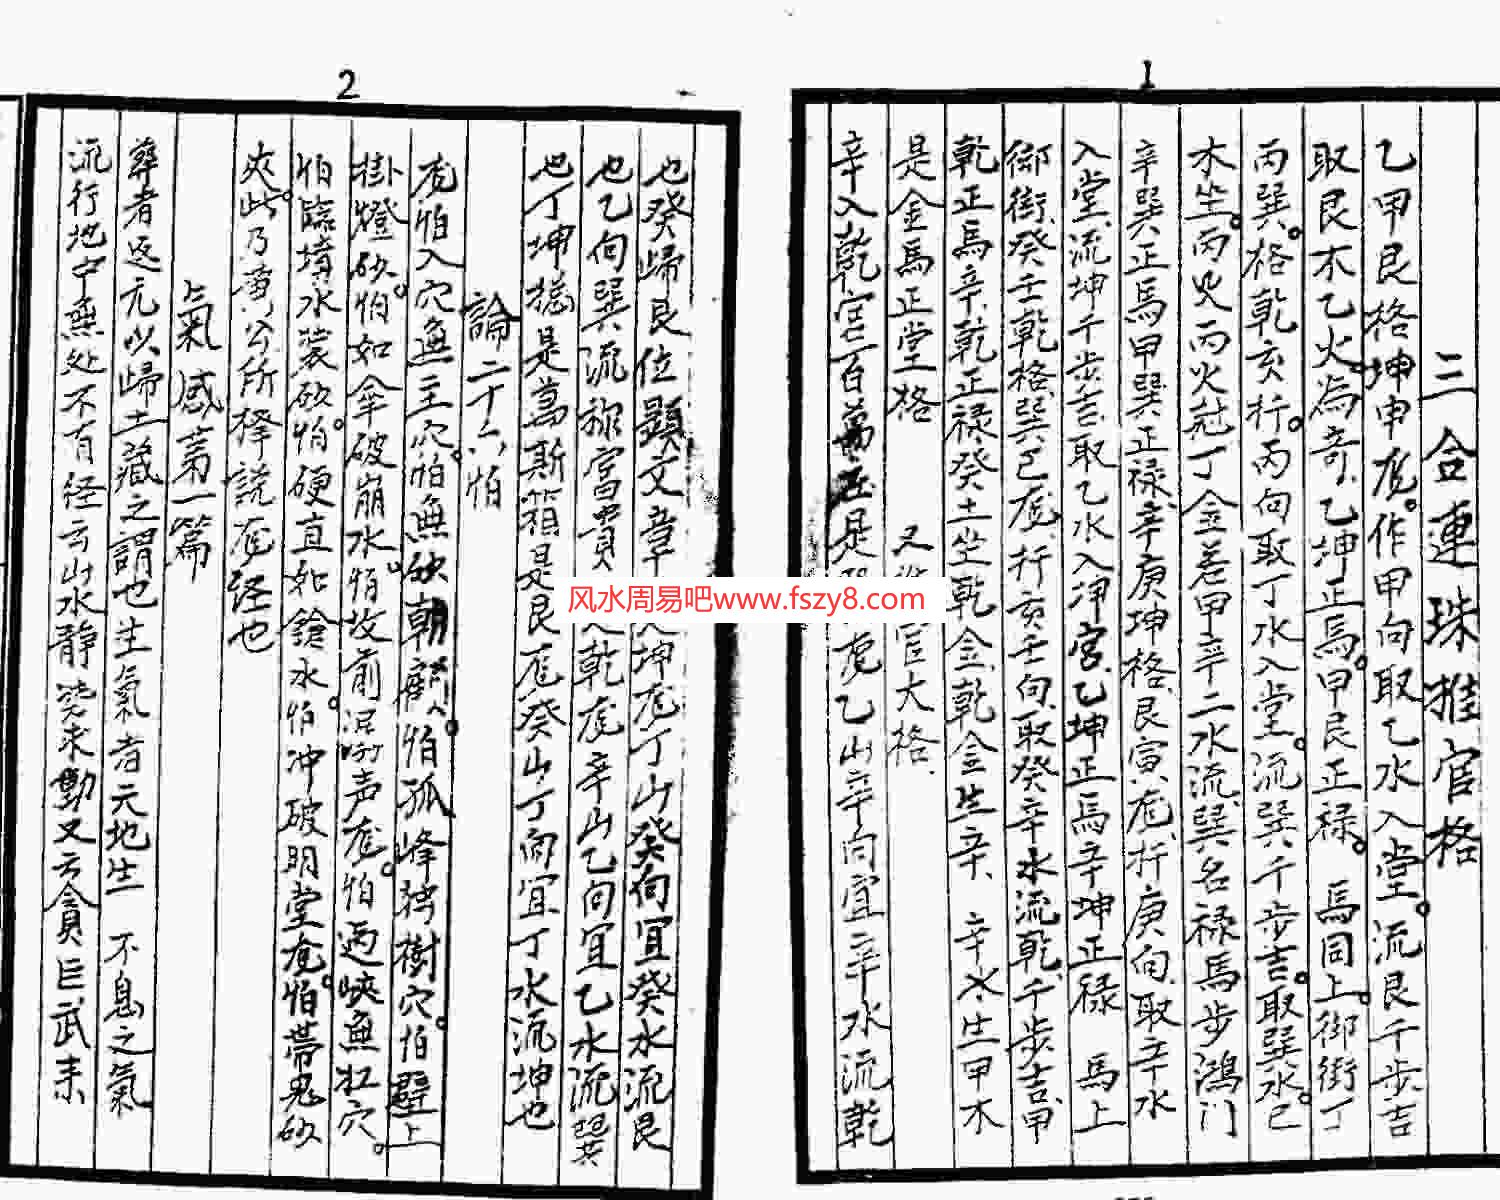 1
三合連珠推官格
乙甲艮格坤申龙。作甲向取乙水入堂。流艮千步吉
取艮木乙火為奇、乙坤正馬。甲艮正禄。馬同上。御街丁
丙巽。格乾亥行。丙向取丁水入堂。流巽千步吉。取巽水。巳
木坐。丙火丙火尅丁金差甲辛二水流巽名禄馬步鴻门
辛巽正馬甲巽正禄、辛庚坤格、艮寅龙、行庚向、取辛水
入堂、流坤千步吉、取乙水入宮、乙坤正馬辛坤正禄 馬上
御街、癸壬乾格、巽巳龙、行亥壬向、取癸辛水流乾、千步吉、甲
乾正馬辛、乾正禄、癸土坐乾金、乾金生辛、辛水生甲木
是金馬正堂格 又 官大格
辛入乾、宮百萬 是 龙乙山辛向宜辛水流乾
2
也癸歸艮位顕文章 坤龙丁山癸向宜癸水流艮
也乙向巽流 富貴 乾龙辛山乙向宜乙水流巽
也丁坤 是萬斯箱是艮龙癸山丁向宜丁水流坤也
論二十六怕
龙怕入穴無主穴。怕無砂朝顧。怕孤峰 樹穴。怕壁上
掛燈砂。怕如傘破崩水。怕坟前 声龙。怕两峽無扛穴。
怕臨墳水 砂。怕硬直如鎗水。怕冲破明堂龙。怕帶鬼砂
夾。此乃 公所擇説龙经也
氣感第一篇
葬者返元以歸土藏之謂也生氣者天地生 不息之氣
流行地中無处不有经云山水静 未動又云貪巨武来
风水周易吧www.fszy8.com